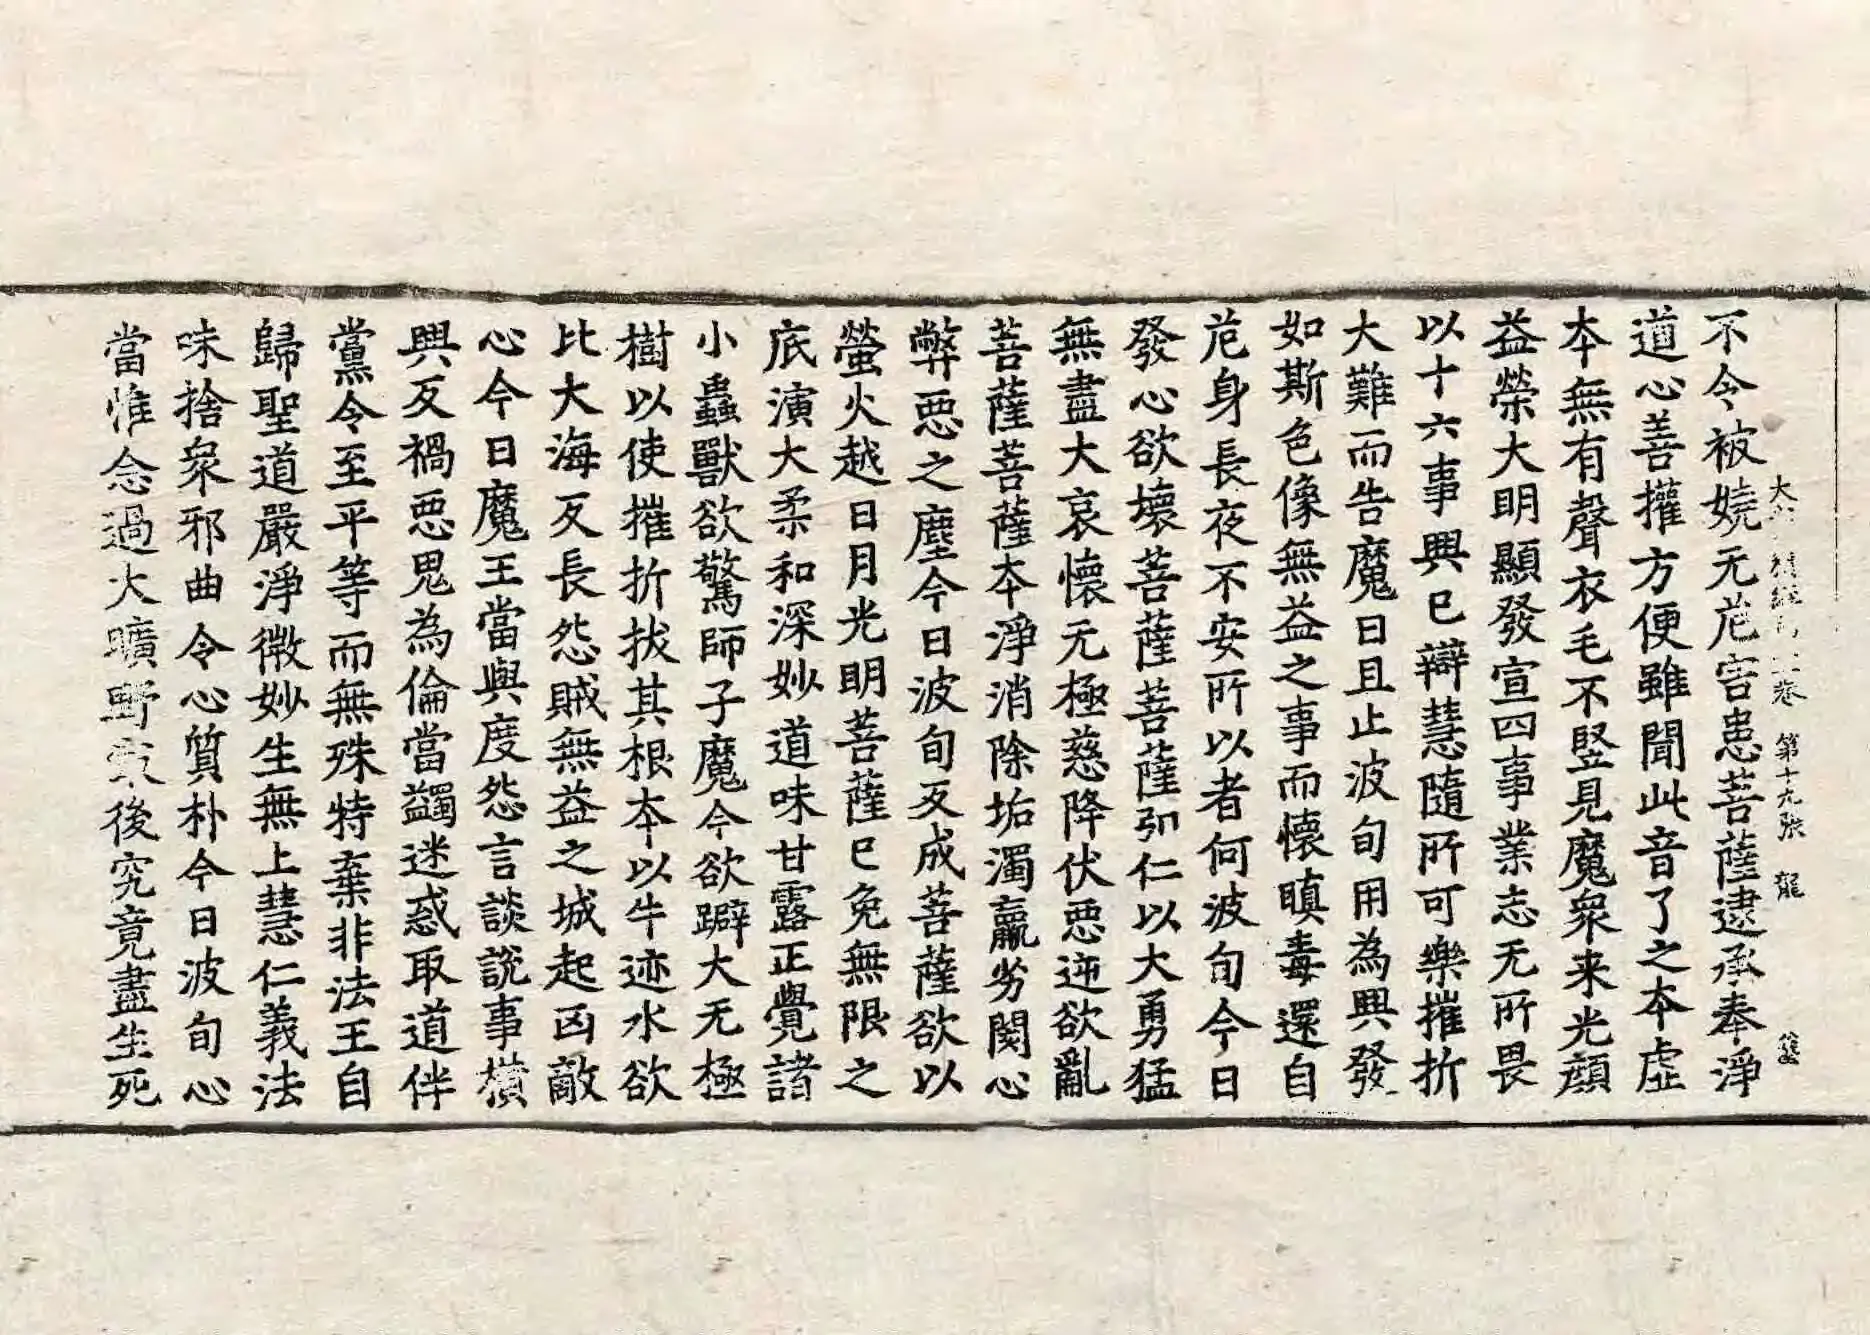 不令被娆无危害患菩薩逮承奉淨
道心善權方便雖聞此音了之本虛
本無有聲衣毛不竪見魔衆来光顔
益榮大明顯發宣四事業志无所畏
以十六事興已辯慧隨所可樂摧折
大難而告魔曰且止波旬用為興發
如斯色像無益之事而懷瞋毒還自
危身長夜不安所以者何波旬今日
發心欲壞菩薩菩薩弘仁以大勇猛
無盡大哀懷无極慈降伏惡逆欲亂
菩薩菩薩本淨消除垢濁羸劣閡心
弊惡之塵今日波旬反成菩薩欲以
螢火越日月光明菩薩已免無限之
底演大柔和深妙道味甘露正覺諸
小蟲獸欲驚師子魔今欲躃大无極
樹以使摧折拔其根本以牛迹水欲
比大海反長怨賊無益之城起凶敵
心今日魔王當與度怨言談說事横
興反禍惡鬼為倫當蠲迷惑取道伴
黨令至平等而無殊特棄非法王自
歸聖道嚴淨微妙生無上慧仁義法
味捨衆邪曲令心質朴今日波旬心
當惟念過大曠野最後究竟盡生死
卷 第十九張 龍